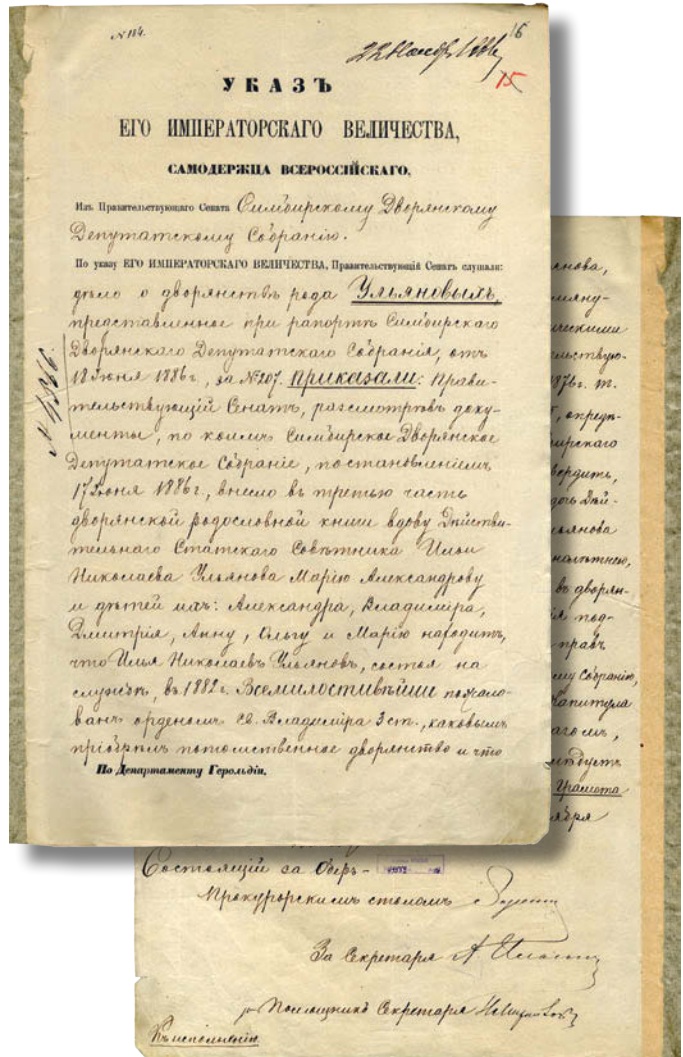 N 184.
16
22 Нояб. 1886
15
УКАЗЪ
ЕГО ИМПЕРАТОРСКАГО ВЕЛИЧЕСТВА,
САМОДЕРЖЦА ВСЕРОССІЙСКАГО,
Изъ Правительствующаго Сената Симбирскому Дворянскому
Депутатскому Собранію.
По указу ЕГО ИМПЕРАТОРСКАГО ВЕЛИЧЕСТВА, Правительствующій Сенатъ слушали:
дѣло о дворянствѣ рода Ульяновыхъ,
представленное при рапортѣ Симбирскаго
Дворянскаго Депутатскаго Собранія, отъ
18 Іюня 1886 г., за № 207. Приказали: Прави-
тельствующій Сенатъ, разсмотрѣвъ доку-
менты, по коимъ Симбирское Дворянское
Депутатское Собраніе, постановленіемъ
17 Іюня 1886 г., внесло въ третью часть
дворянской родословной книги вдову Дѣйстви-
тельнаго Статскаго Совѣтника Ильи
Николаева Ульянова Марію Александрову
и дѣтей ихъ: Александра, Владиміра,
Дмитрія, Анну, Ольгу и Марію находитъ,
что Илья Николаевъ Ульяновъ, состоя на
службѣ, въ 1882 г. Всемилостивѣйше пожало-
ванъ орденомъ Св. Владиміра 3 ст., каковымъ
пріобрѣлъ потомственное дворянство и что
По Департаменту Герольдіи.
янова,
мяну-
ческими
ельствую-
1876 г. т.
опредѣ-
бирскаго
вердить,
дочь Дѣй-
льянова
налѣтнею,
въ дворян-
ія под-
правъ
му Собранію,
Капитула
аго мъ,
лѣдуетъ
Грамота
ября
Состоящій за Оберъ-
Прокурорскимъ столомъ
За Секретаря А.
Помощникъ Секретаря
Къ исполненію.